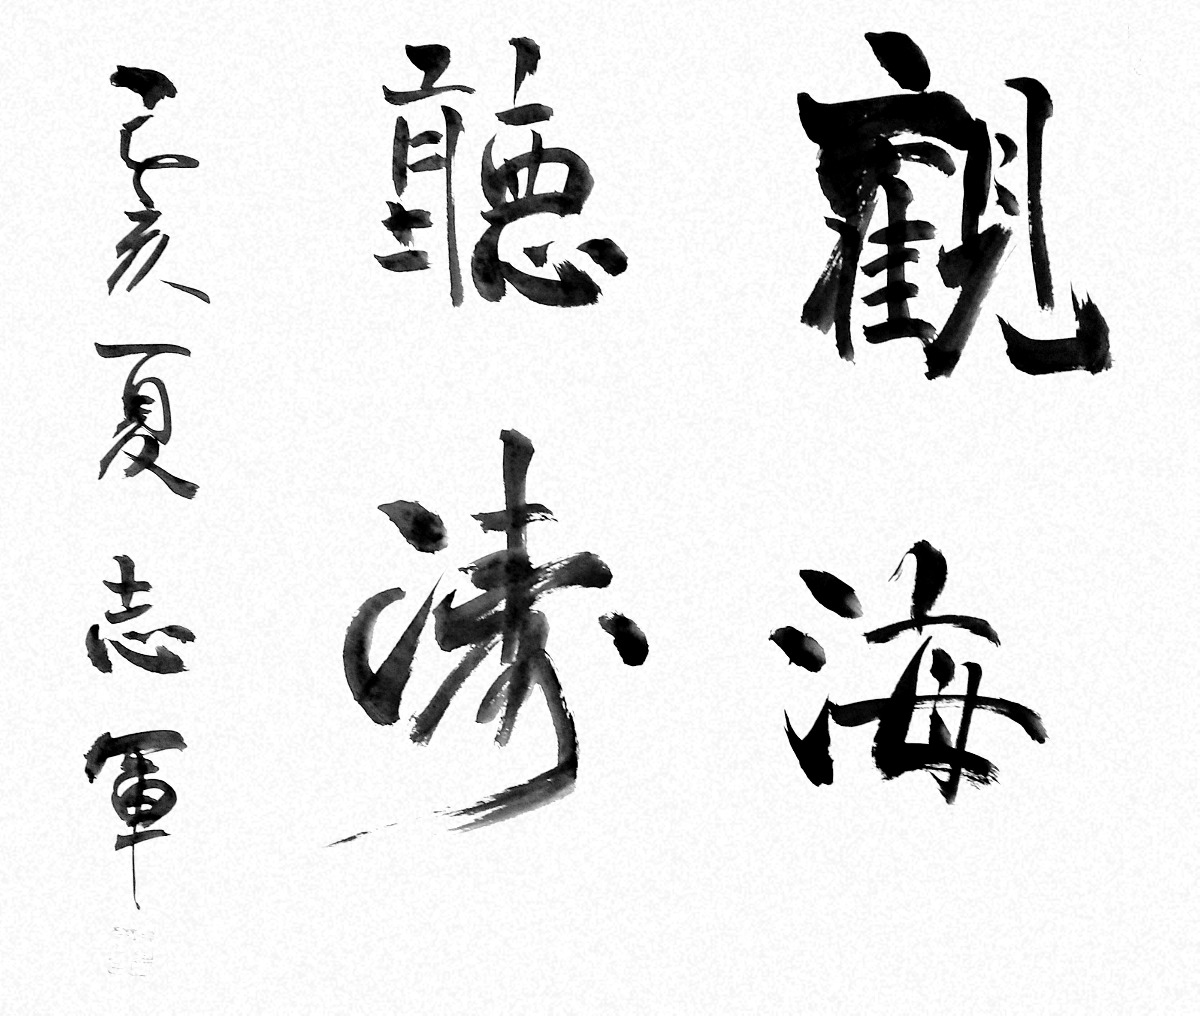 觀海
聽濤
己亥夏志軍